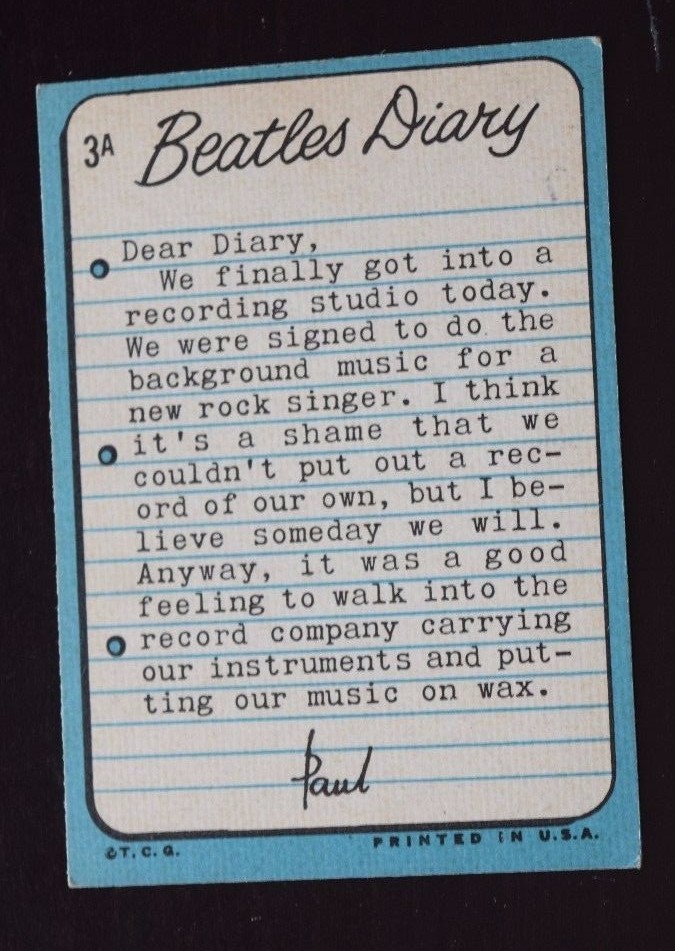 3A Beatles Diary
Dear Diary,
We finally got into a
recording studio today.
We were signed to do the
background music for a
new rock singer. I think
it's a shame that we
couldn't put out a rec-
ord of our own, but I be-
lieve someday we will.
Anyway, it was a good
feeling to walk into the
record company carrying
our instruments and put-
ting our music on wax.
Paul
©T.C.G. PRINTED IN U.S.A.